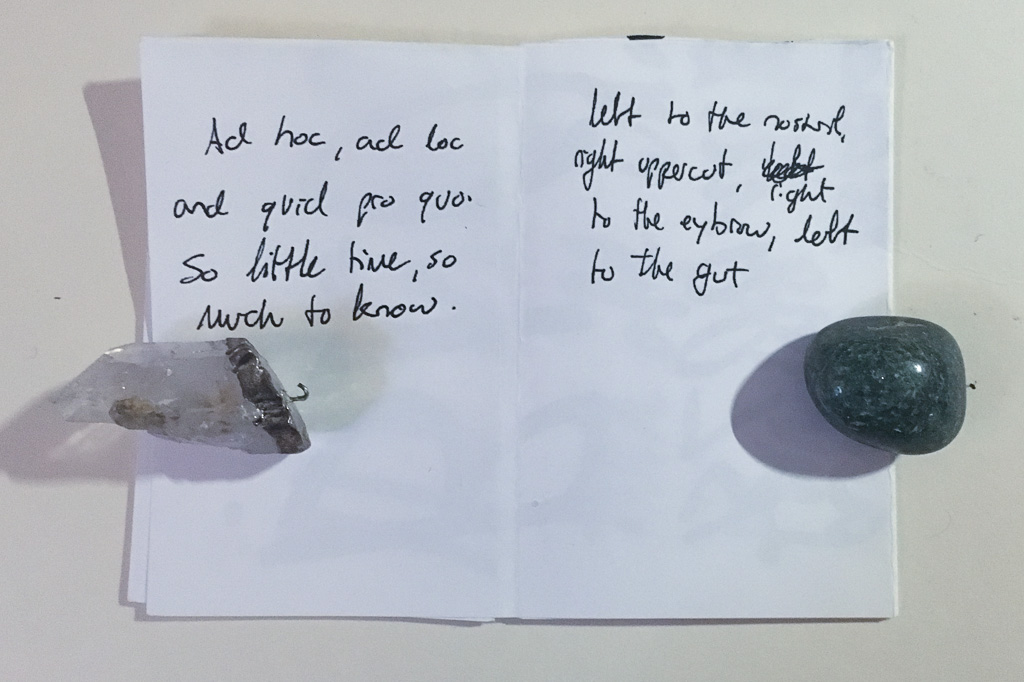 Ad hoc, ad loc
and quid pro quo.
So little time, so
much to know.
left to the nostril,
right uppercut,
right
to the eybrow, left
to the gut